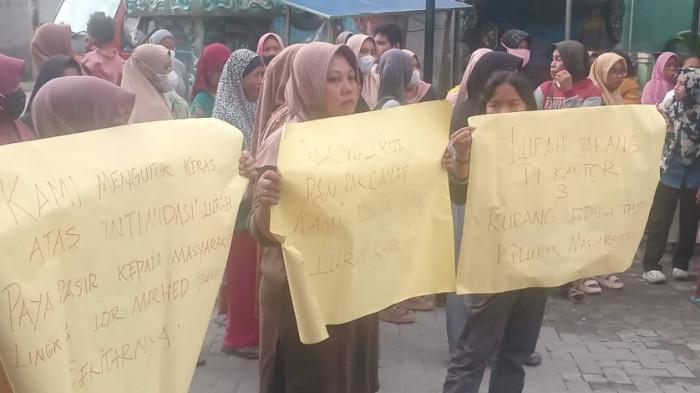 KAMI MENGUTUK KERAS
ATAS 'INTIMIDASI' LURAH
PAYA PASIR KEPADA MASYARAKAT
LINGK 3 LOR MARHED DAN
SEKITARNYA.
WALI KOTA
DAN PAK CAMAT
KAMI
LURAH KAMI
LURAH JARANG
DI KANTOR
&
KURANG PEDULI THDP
KELUHAN MASYARAKAT